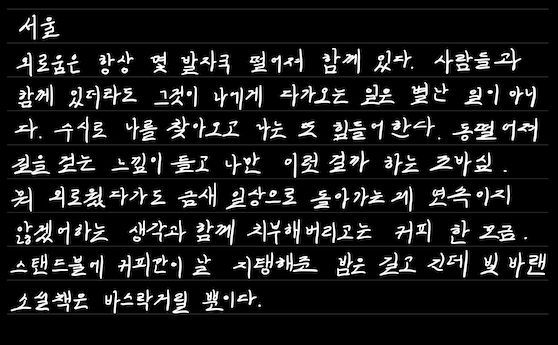 서울
외로움은 항상 몇 발자국 떨어져 함께 있다. 사람들과
함께 있더라도 그것이 나에게 다가오는 일은 별난 일이 아니
다. 수시로 나를 찾아오고 나는 또 힘들어한다. 동떨어져
길을 걷는 느낌이 들고 나만 이런 걸까 하는 조바심.
뭐 외로웠다가도 금새 일상으로 돌아가는게 연속이지
않겠어하는 생각과 함께 치부해버리고는 커피 한 모금.
스탠드불에 커피잔이 날 지탱해주 밤은 길고 긴데 빛 바랜
소설책은 바스락거릴 뿐이다.